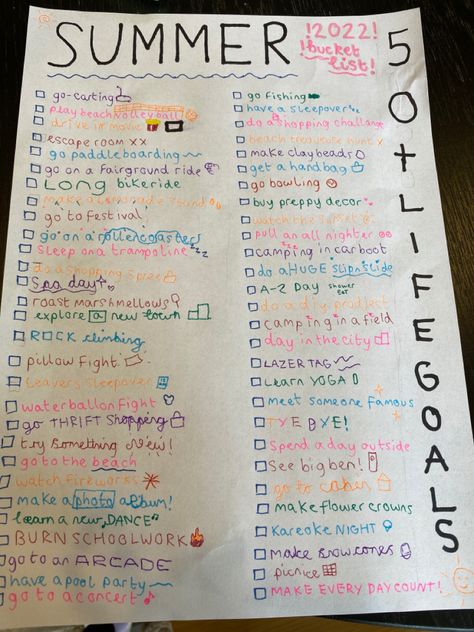 SUMMER
!2022!
!bucket
list!
50+ LIFE GOALS
go-carting
play beach volleyball
drive in movie
escape room xx
go paddleboarding
go on a fairground ride
LONG bikeride
make a lemonade stand
go to festival
go on a rollercoasters
sleep on a trampoline zzz
do a shopping spree
Spa day
roast marshmellows
explore a new town
ROCK climbing
pillow fight
Leavers sleepover
waterballon fight
go THRIFT shopping
try something new!
go to the beach
watch fireworks
make a photo album!
learn a new DANCE
BURN SCHOOLWORK
go to an ARCADE
have a pool party
go to a concert
go fishing
have a sleepover zz
do a shopping challange
beach treasure hunt x
make clay beads
get a handbag
go bowling
buy preppy decor
watch the sunset
pull an all nighter
camping in car boot
do a HUGE slip n slide
A-Z Day
do a diy project
camping in a field
day in the city
LAZER TAG
Learn YOGA
meet someone famous
TYE BYE!
Spend a day outside
See big ben!
go to
make flower crowns
Kareoke NIGHT
make snowcones
picnice
MAKE EVERY DAY COUNT!